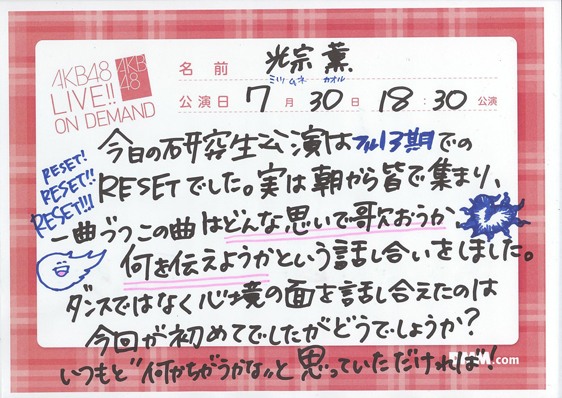 AKB48
LIVE!!
ON DEMAND
AKB
48
名前 光宗 薫
ミツムネ カオル
公演日 7月30日 18:30公演
今日の研究生公演はフル13期での
RESET!
RESET!!
RESET!!!
RESETでした。実は朝から皆で集まり、
一曲づつこの曲はどんな思いで歌おうか、
何を伝えようかという話し合いをしました。
ダンスではなく心境の面を話し合えたのは
今回が初めてでしたがどうでしょうか?
いつもと"何かちがうかな"と思っていただければ!
.com